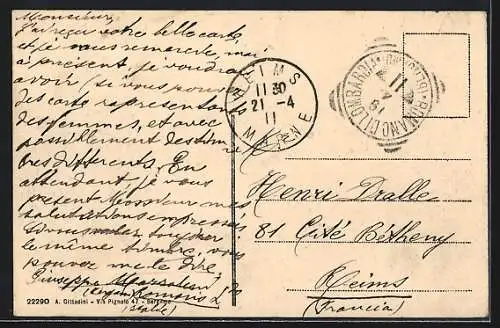 Monsieur
J'ai reçu votre belle carte
et je vous remercie, mais
à présent, je voudrais
avoir (si vous pouvez
des carte representants
des femmes, et avec
possiblement des tim
bres differents. En
attendant je vous
present Monsieur mes
salutations
le même timbre, vous
pouvez me le dire.
Giuseppe
(Italie)
REIMS
11 30
21 - 4
11
MARNE
ROMANO DI LOMBARDIA
11
Henri Dralle
81 Cité Bétheny
Reims
(Francia)
22290 A. Cittadini - Via Pignolo 47 - Bergamo